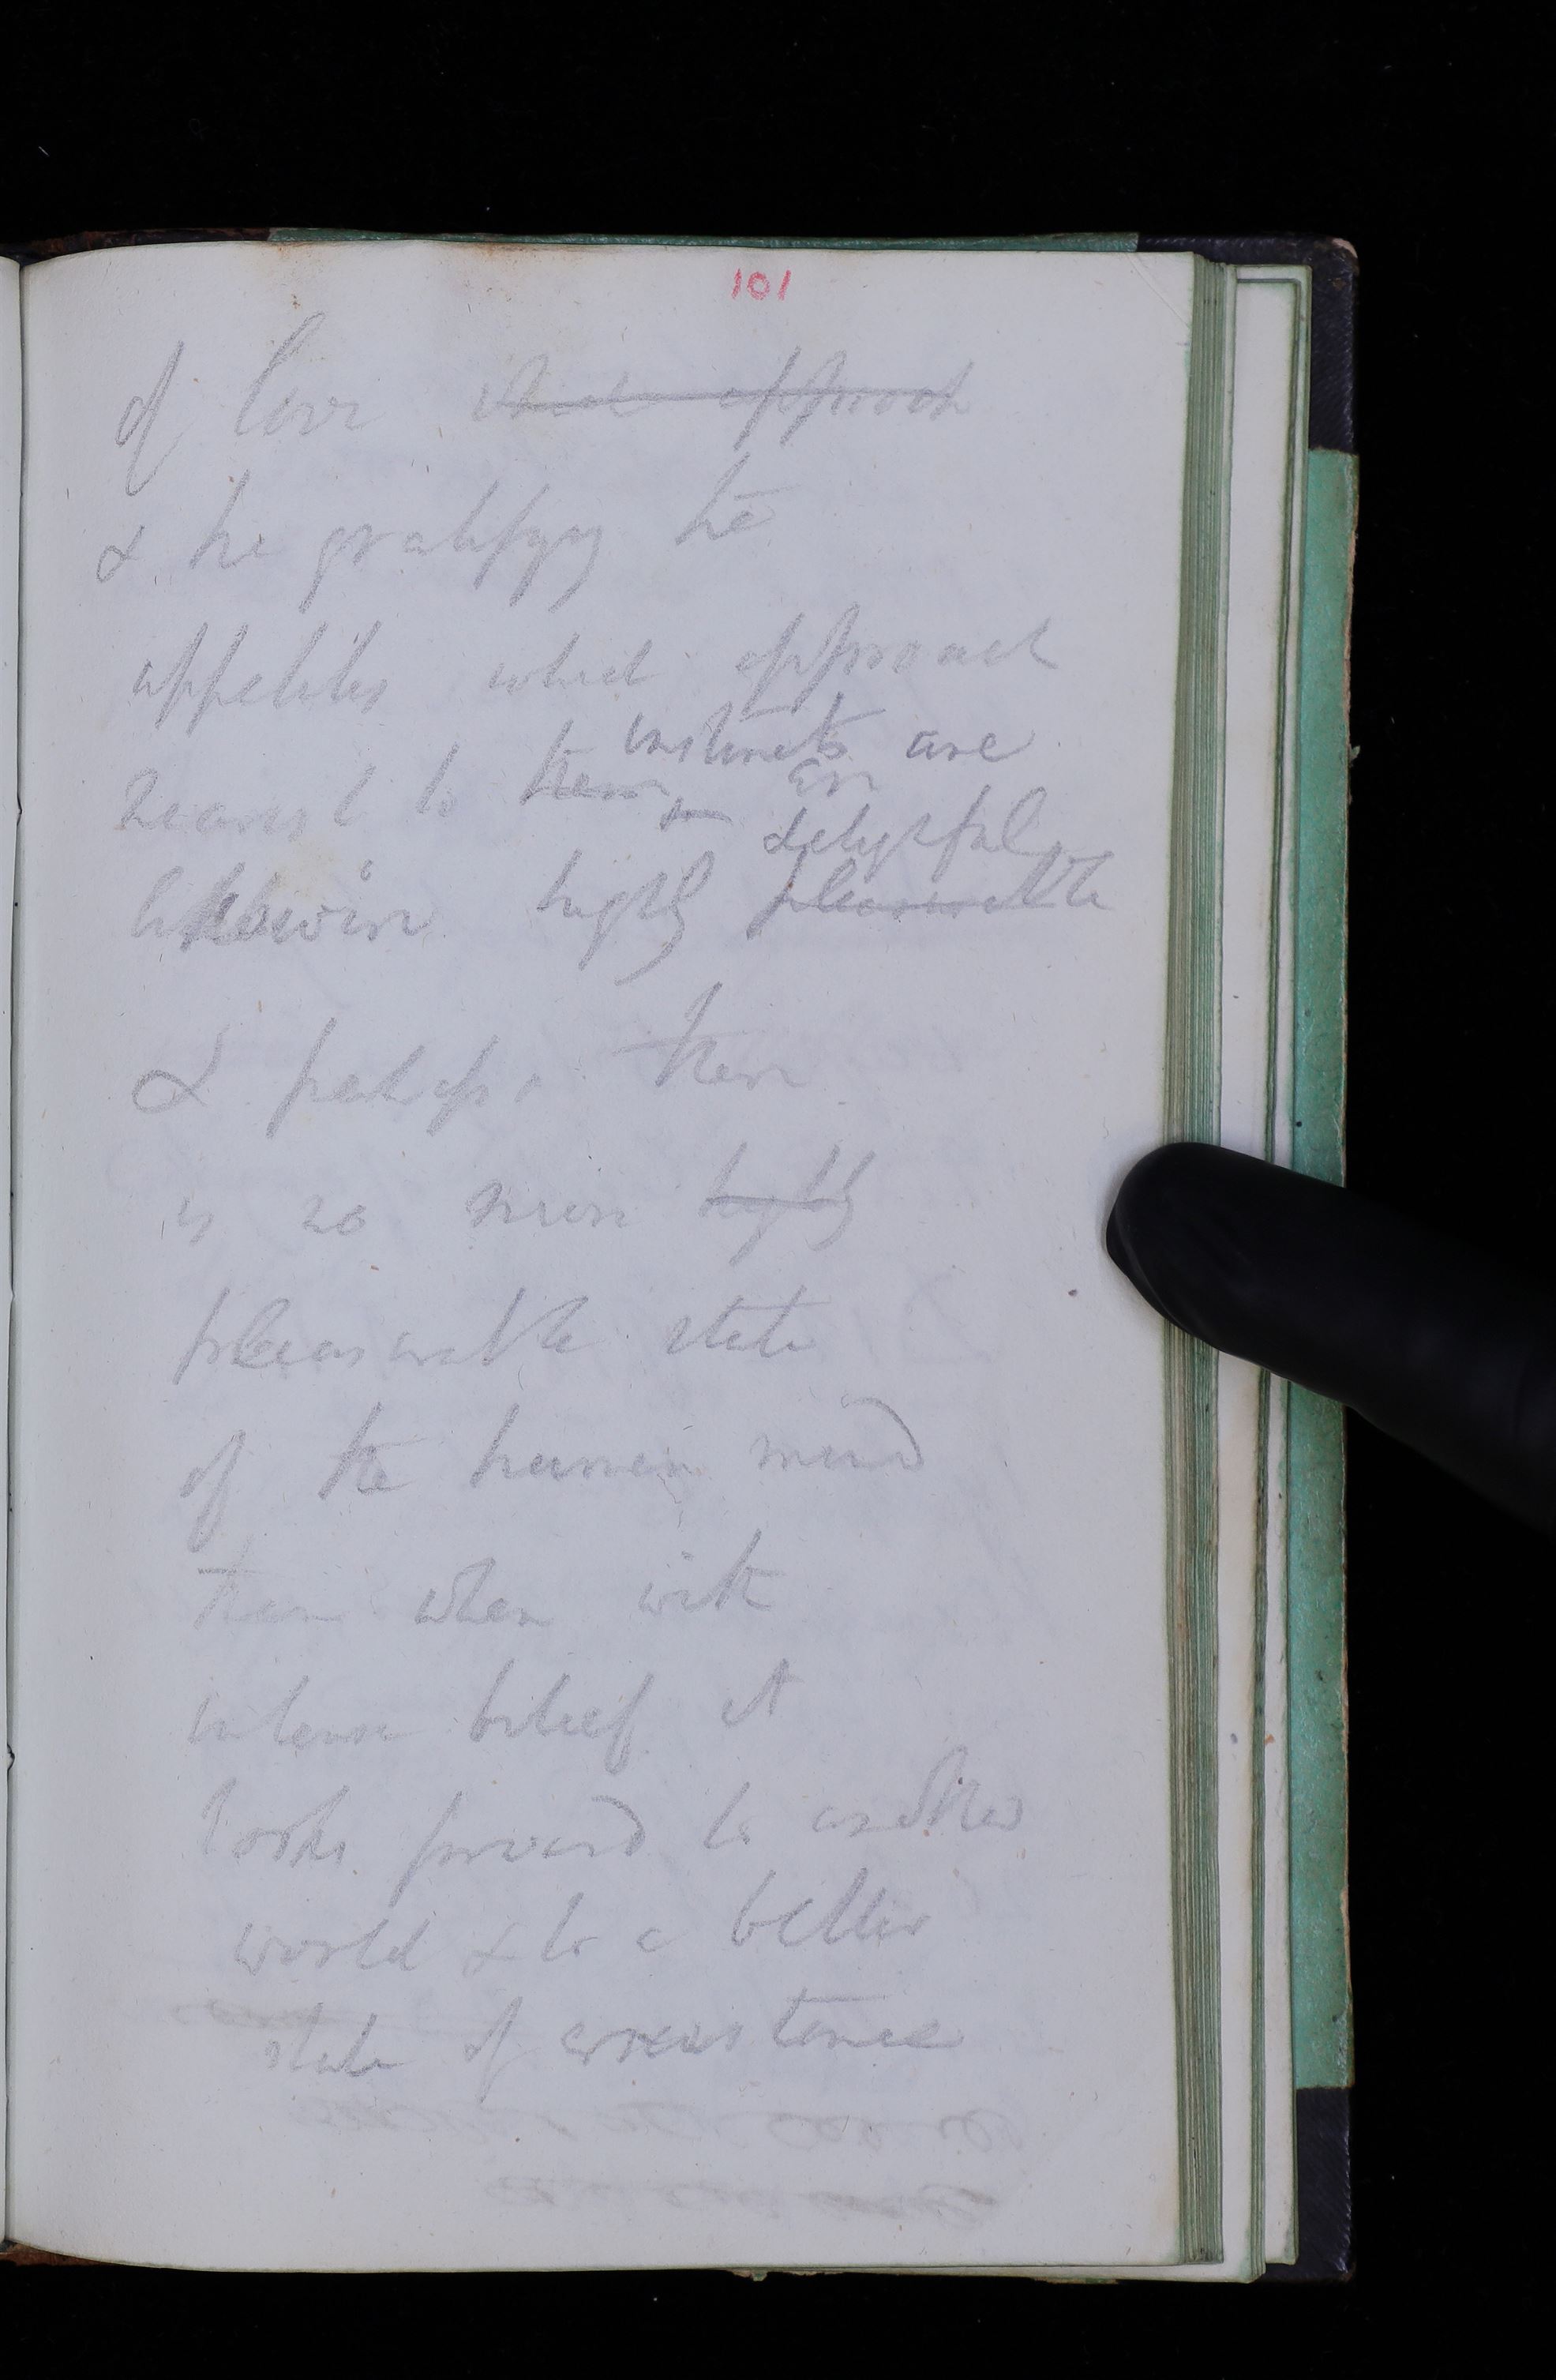 101
of love which approach
& the gratifying the
appetites which approach
instincts are
nearest to them
delightful
likewise highly pleasurable
& perhaps there
is no more highly
pleasurable state
of the human mind
than when with
intense belief it
looks forward to another
world & to a better
state of existence